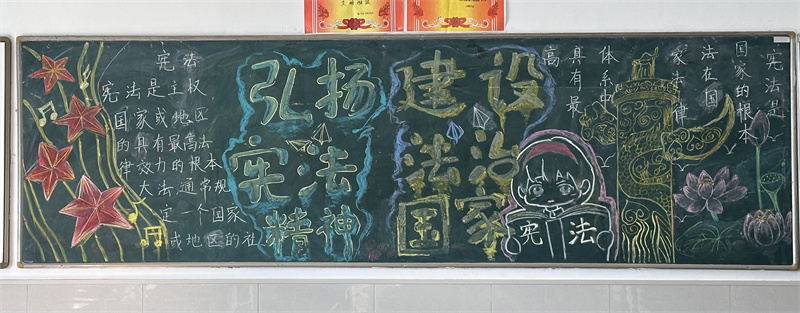 宪法
宪法是主权
国家或地区
的具有最高法
律效力的根本
大法,通常规
定一个国家
或地区的社
弘扬
宪法
精神
建设
法治
国家
宪法
宪法是
国家的根本
法在国
家法律
体系中
具有最
高